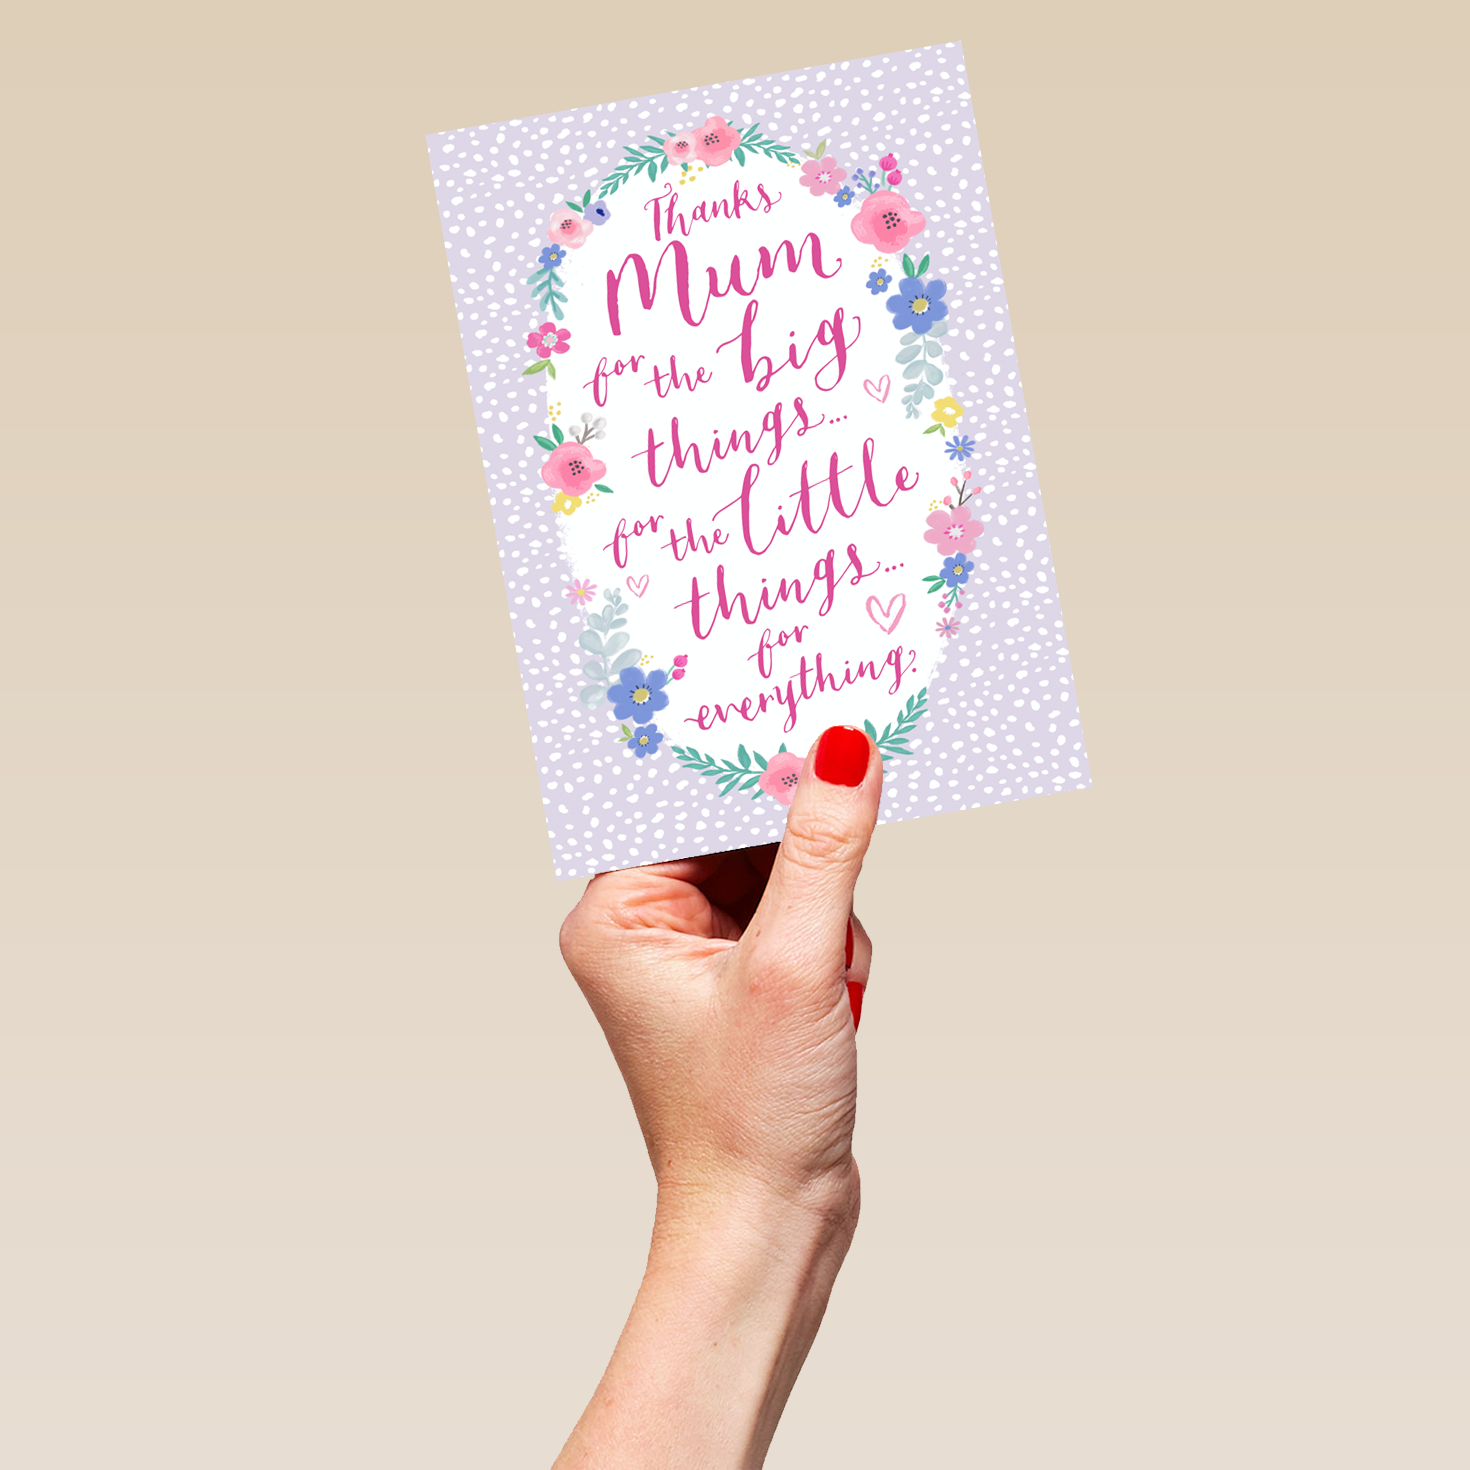 Thanks
Mum
for the big
things...
for the little
things...
for
everything.